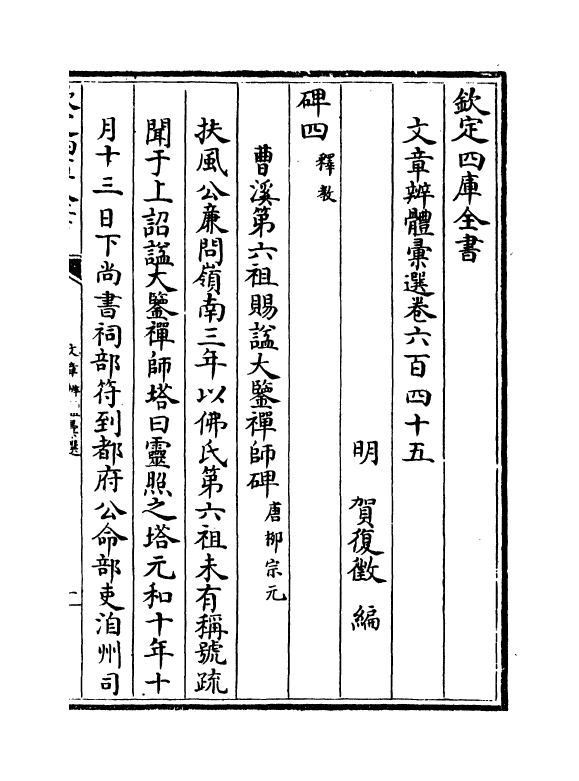 欽定四庫全書
文章辨體彚選卷六百四十五
明 賀復徵 編
碑四 釋教
曹溪第六祖賜諡大鑒禪師碑 唐柳宗元
扶風公亷問嶺南三年以佛氏第六祖未有稱號疏
聞于上詔諡大鑒禪師塔曰靈照之塔元和十年十
月十三日下尚書祠部符到都府公命部吏洎州司